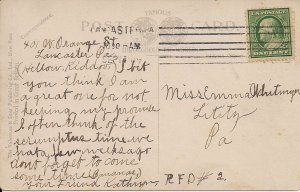 POST CARD
FAMOUS
LANCASTER
10 AM
401 W. Orange St
Lancaster Pa
Hellow Kiddo. I bit
you think I am
a great one for not
keeping my promise
I often think of the
scrumptus time we
had a few weeks ago
dont forget to come
some time (Sunday)
Your Friend Kathryn
Miss Emma
Lititz
Pa
R F D # 2.